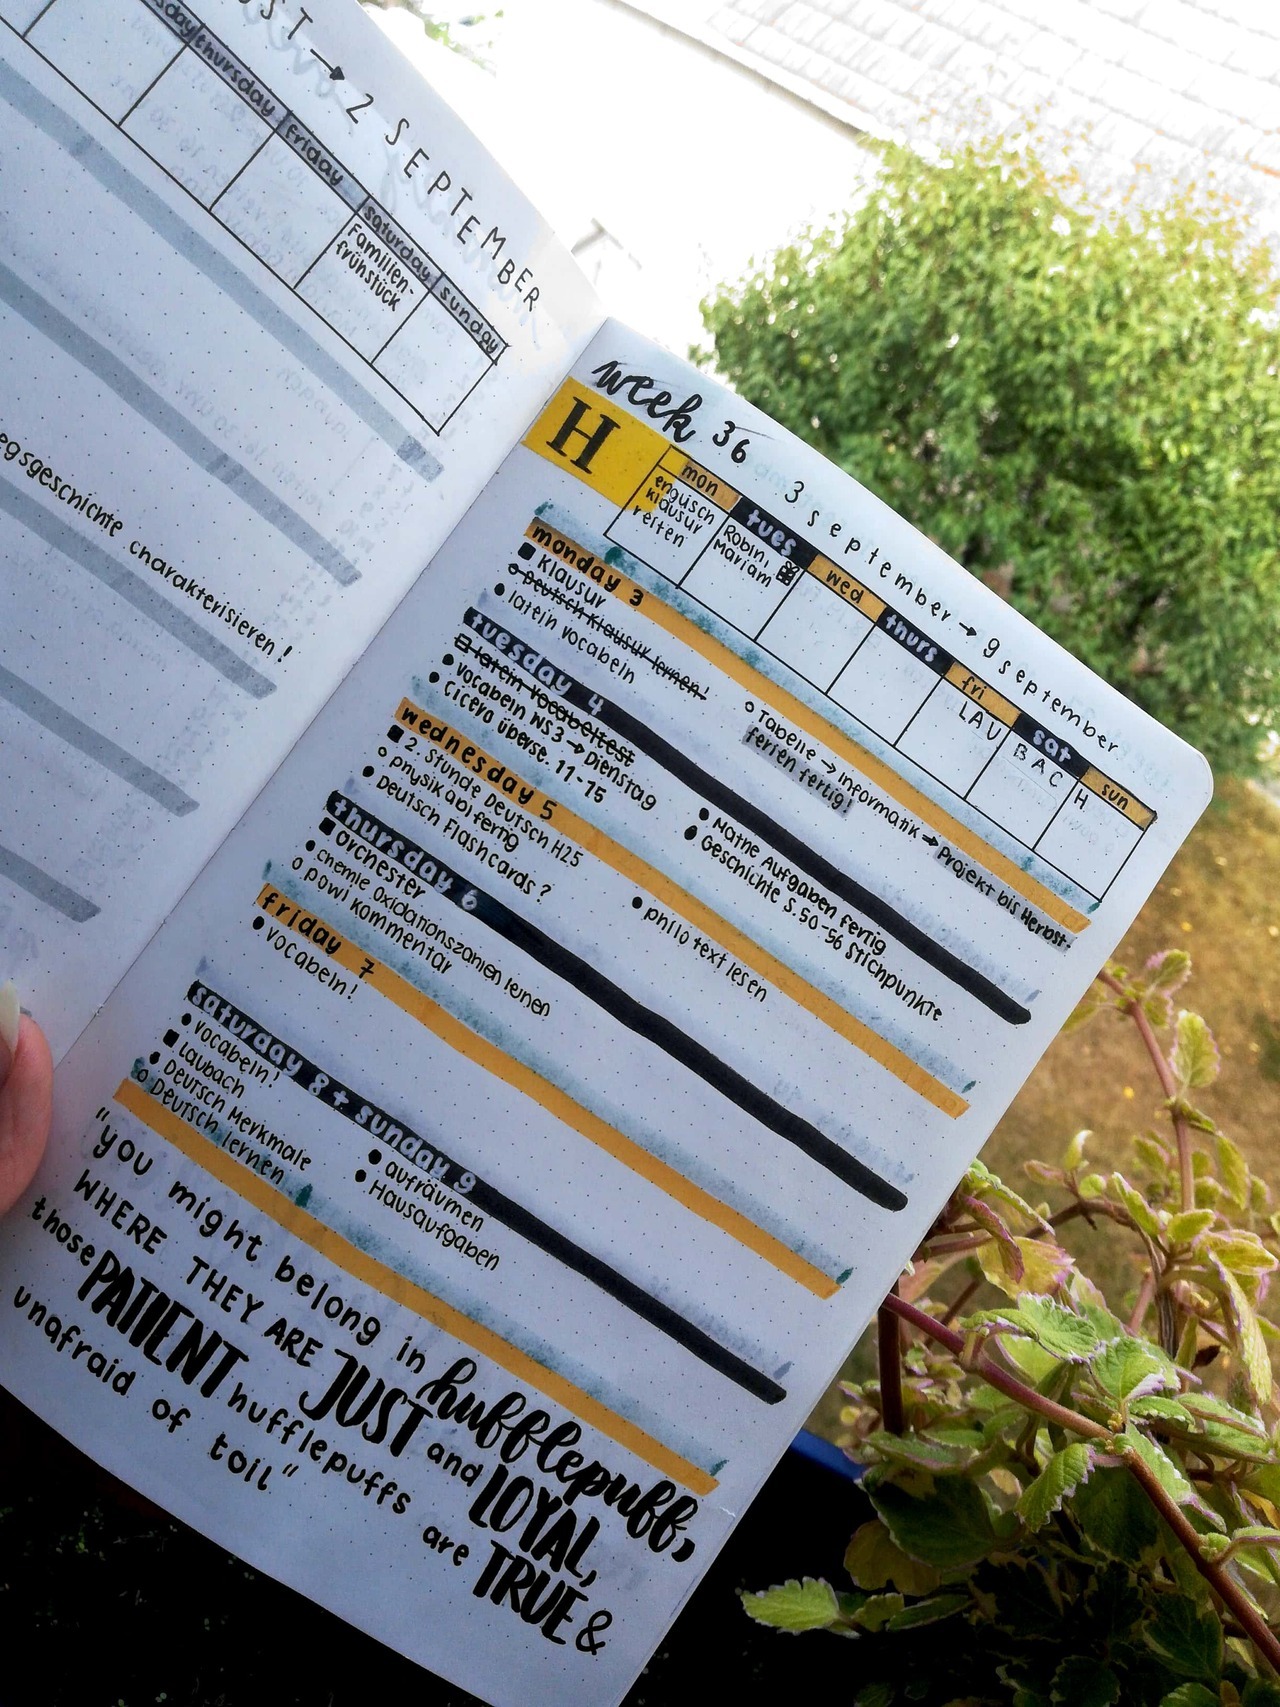 2 SEPTEMBER
thursday
friday
saturday
sunday
Familien-
frühstück
charakterisieren!
week 36
3 september → 9 september
H
mon
tues
wed
thurs
fri
sat
sun
englisch
klausur
reiten
Robin,
Mariam
LAU
BAC
H
monday 3
Klausur
Deutsch Klausur lernen!
latein vocabeln
Tabelle → informatik → Projekt bis Herbst-
ferien fertig!
tuesday 4
latein vocabeltest
vocabeln WS 3 → Dienstag
cicero überse. 11-15
Mathe Aufgaben fertig
Geschichte S.50-56 Stichpunkte
wednesday 5
2. Stunde Deutsch H25
physik abi fertig
Deutsch Flashcards?
philo text lesen
thursday 6
orchester
chemie Oxidationszahlen lernen
powi kommentar
friday 7
vocabeln!
saturday 8 + sunday 9
vocabeln!
Laubach
Deutsch Merkmale
Deutsch lernen
aufräumen
Hausaufgaben
"you might belong in hufflepuff,
WHERE THEY ARE JUST and LOYAL,
those PATIENT hufflepuffs are TRUE &
unafraid of toil"